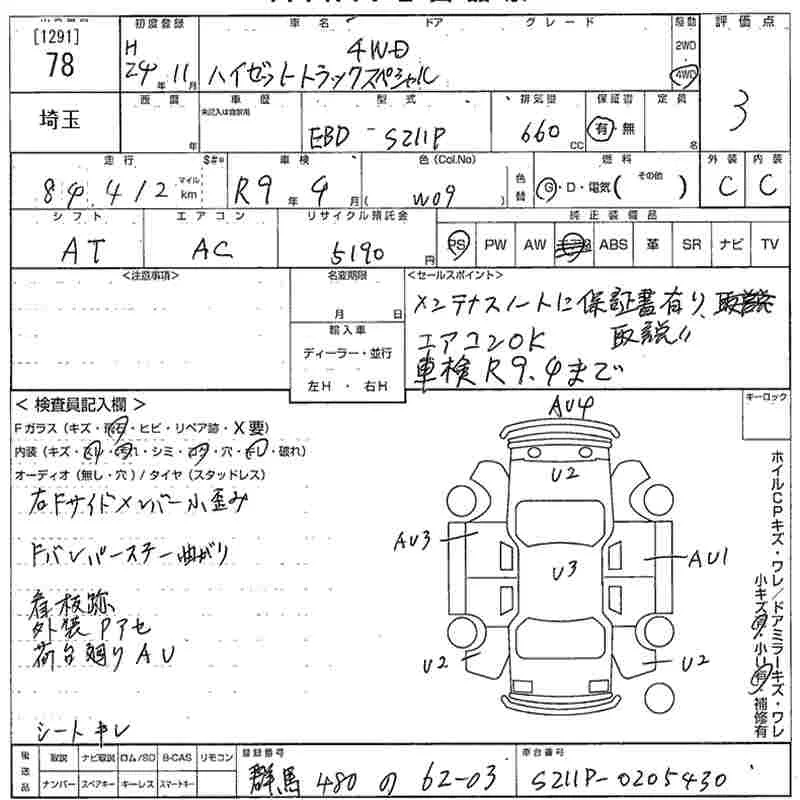 [1291]
78
埼玉
初度登録
H 24年 11月
車名 ドア グレード
4WD
ハイゼットトラックスペシャル
駆動
2WD
4WD
評価点
3
西暦
年
車歴
未記入は自家用
型式
EBD - S211P
排気量
660 CC
保証書
有・無
定員
名
走行
84,412
マイル
km
$#※
車検
R9年 4月
色 (Col.No)
( W09 )
色替
燃料
G・D・電気( その他 )
外装
C
内装
C
シフト
AT
エアコン
AC
リサイクル預託金
5190 円
純正装備品
PS PW AW ABS 革 SR ナビ TV
<注意事項>
名変期限
月 日
輸入車
ディーラー・並行
左H ・ 右H
<セールスポイント>
メンテナスノートに保証書有り、
エアコンOK 取説〃
車検R9.4まで
<検査員記入欄>
Fガラス (キズ・飛石・ヒビ・リペア跡・X要)
内装 (キズ・・シミ・・穴・・破れ)
オーディオ (無し・穴) / タイヤ (スタッドレス)
右Fサイドメンバー小歪み
Fバンパーステー曲がり
看板跡
外装Pアセ
荷台廻りAU
シートキレ
キーロック
AU4
U2
AU3
U3
AU1
U2
U2
ホイルCPキズ・ワレ/ドアミラーキズ・ワレ
補修有
後送品
取説 ナビ取説 ロム/SD B-CAS リモコン
ナンバー スペアキー キーレス スマートキー
登録番号
群馬 480 の 62-03
車台番号
S211P-0205430